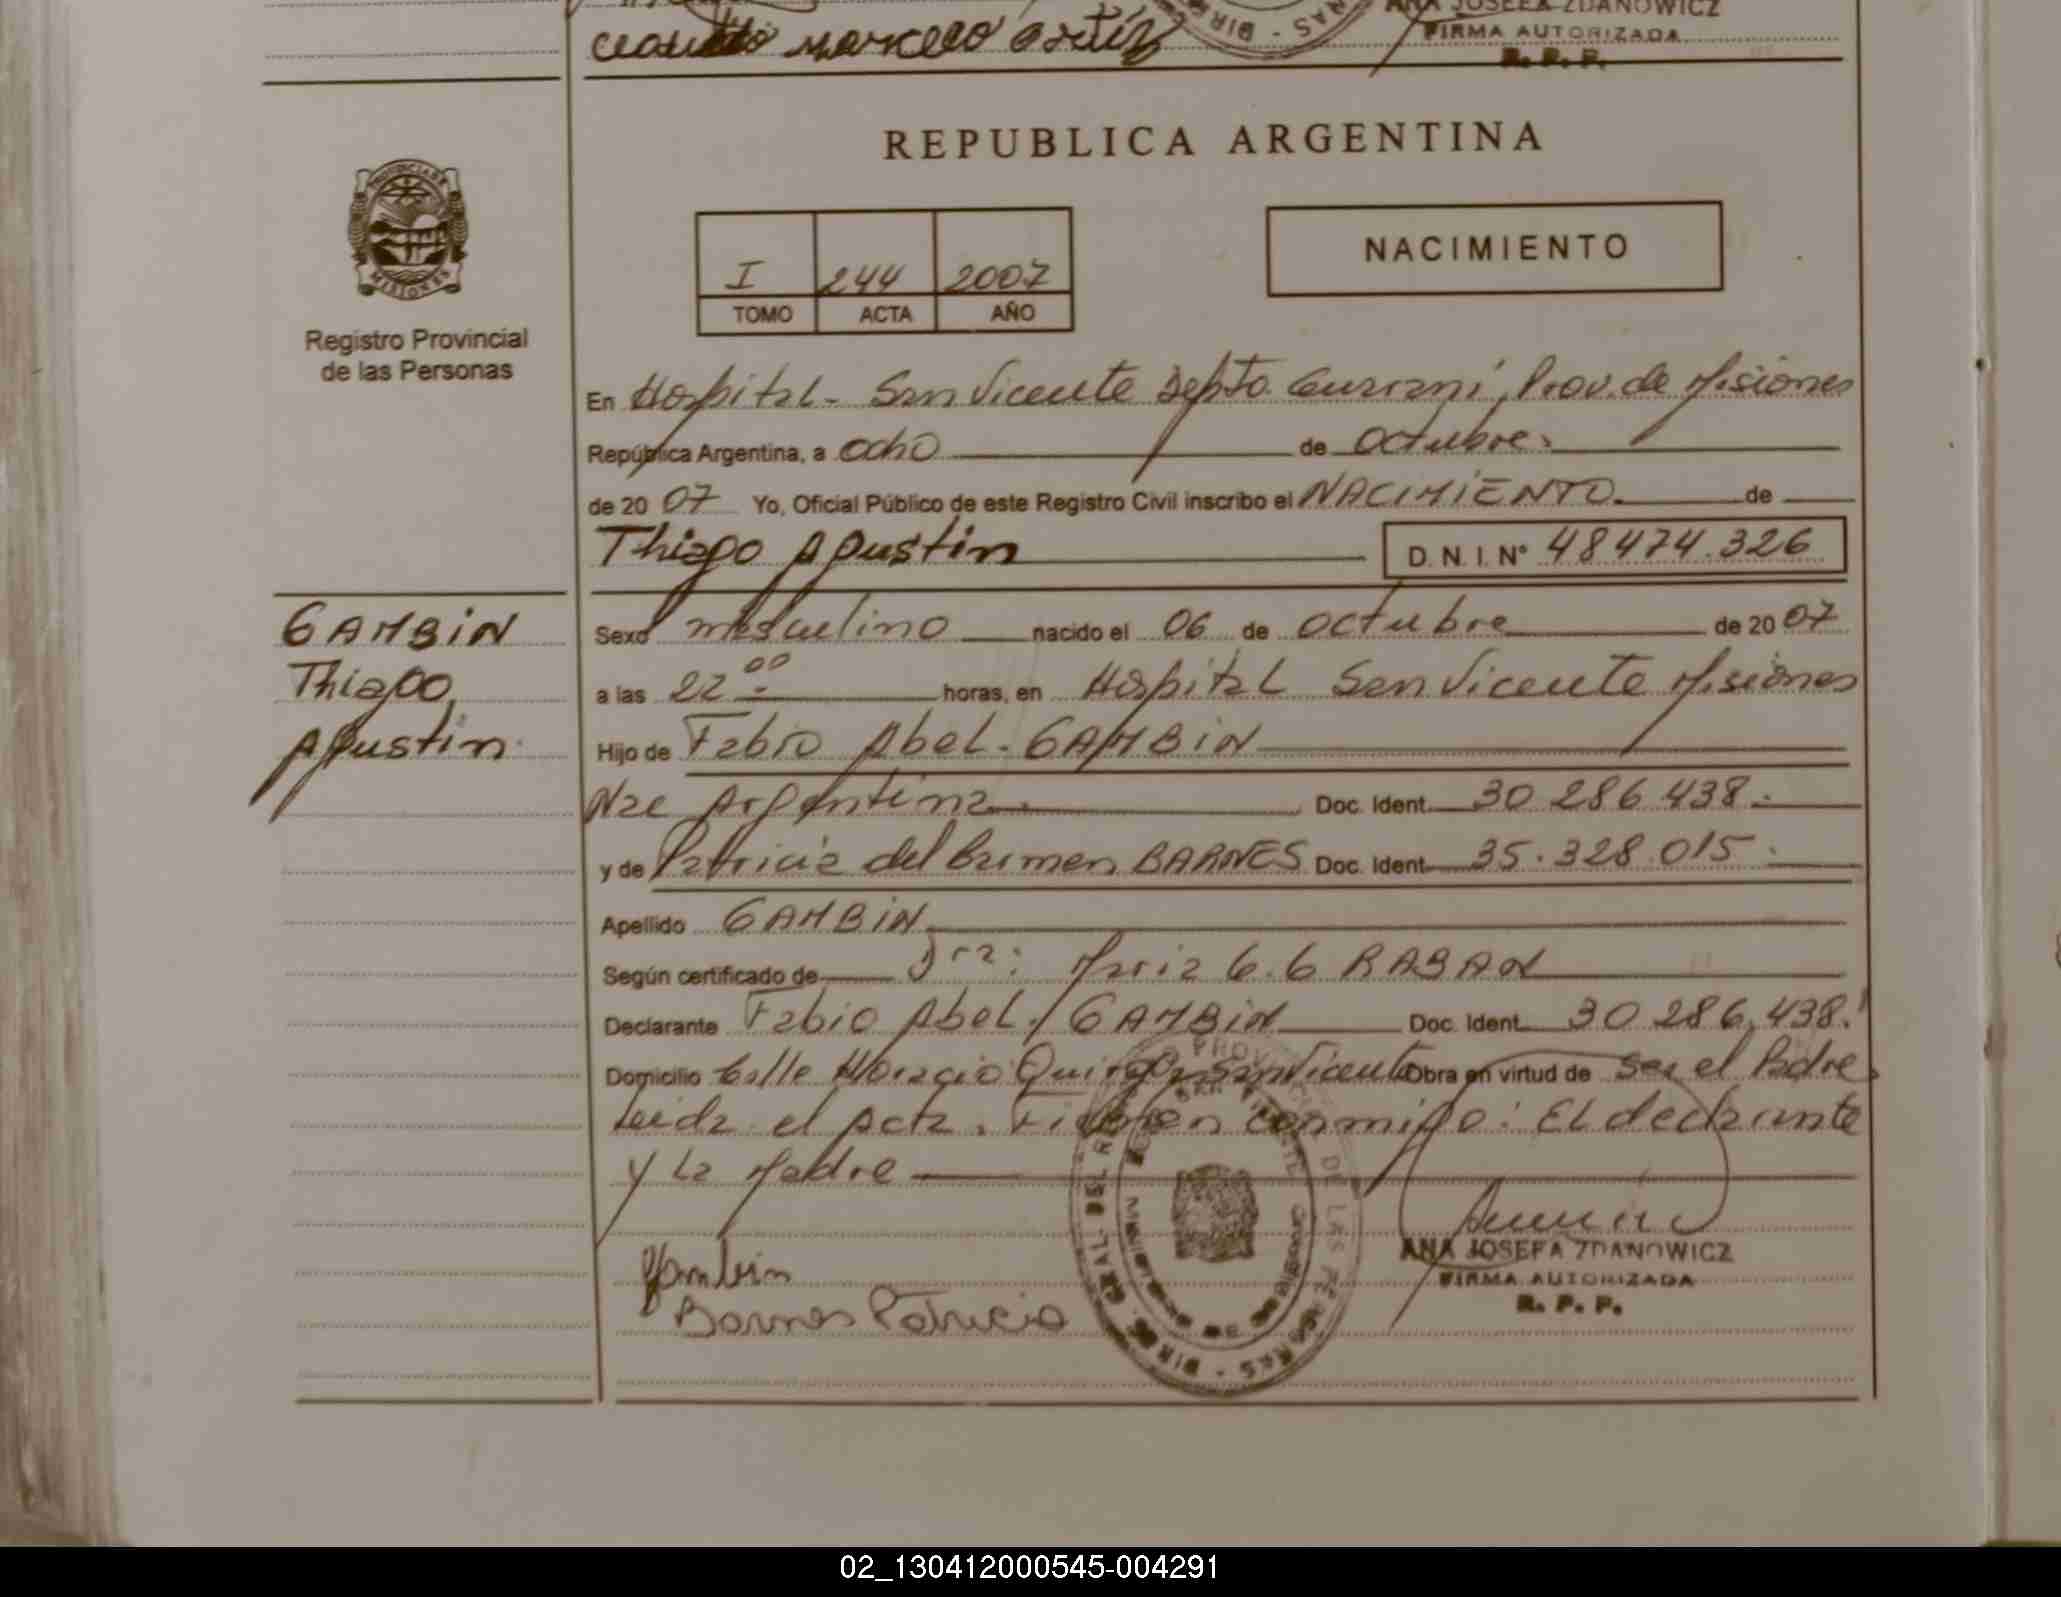 Claudio Marcelo Ortiz
ANA JOSEFA ZDANOWICZ
FIRMA AUTORIZADA
R. P. P.
REPUBLICA ARGENTINA
PROVINCIA DE
MISIONES
Registro Provincial
de las Personas
I 244 2007
TOMO ACTA AÑO
NACIMIENTO
En Hospital - San Vicente Depto. Guaraní, Prov. de Misiones
República Argentina, a ocho de octubre.
de 2007 Yo, Oficial Público de este Registro Civil inscribo el NACIMIENTO de
Thiago Agustin D. N. I. N° 48474.326
GAMBIN
Thiago
Agustin
Sexo masculino nacido el 06 de octubre de 2007
a las 22 00 horas, en Hospital San Vicente Misiones
Hijo de Fabio Abel - GAMBIN
Nac Argentina. Doc. Ident. 30 286 438.-
y de Patricia del Carmen BARNES Doc. Ident. 35.328.015.
Apellido GAMBIN
Según certificado de Dra: Maria G. G RABAN
Declarante Fabio Abel. GAMBIN Doc. Ident. 30 286.438.
Domicilio Calle Horacio Quiroga San Vicente Obra en virtud de ser el Padre
Leida el acta. Firman conmigo: El declarante
y La Madre
Gambin
Barnes Patricia
ANA JOSEFA ZDANOWICZ
FIRMA AUTORIZADA
R. P. P.
02_130412000545-004291